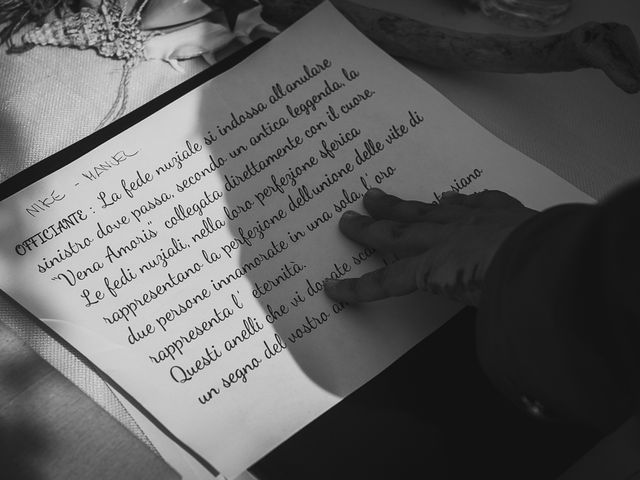 NIKE - MANUEL
OFFICIANTE : La fede nuziale si indossa all'anulare
sinistro dove passa, secondo un antica leggenda, la
"Vena Amoris" collegata direttamente con il cuore.
Le fedi nuziali, nella loro perfezione sferica
rappresentano la perfezione dell'unione delle vite di
due persone innamorate in una sola, l'oro
rappresenta l' eternità.
Questi anelli che vi donate siano
un segno del vostro